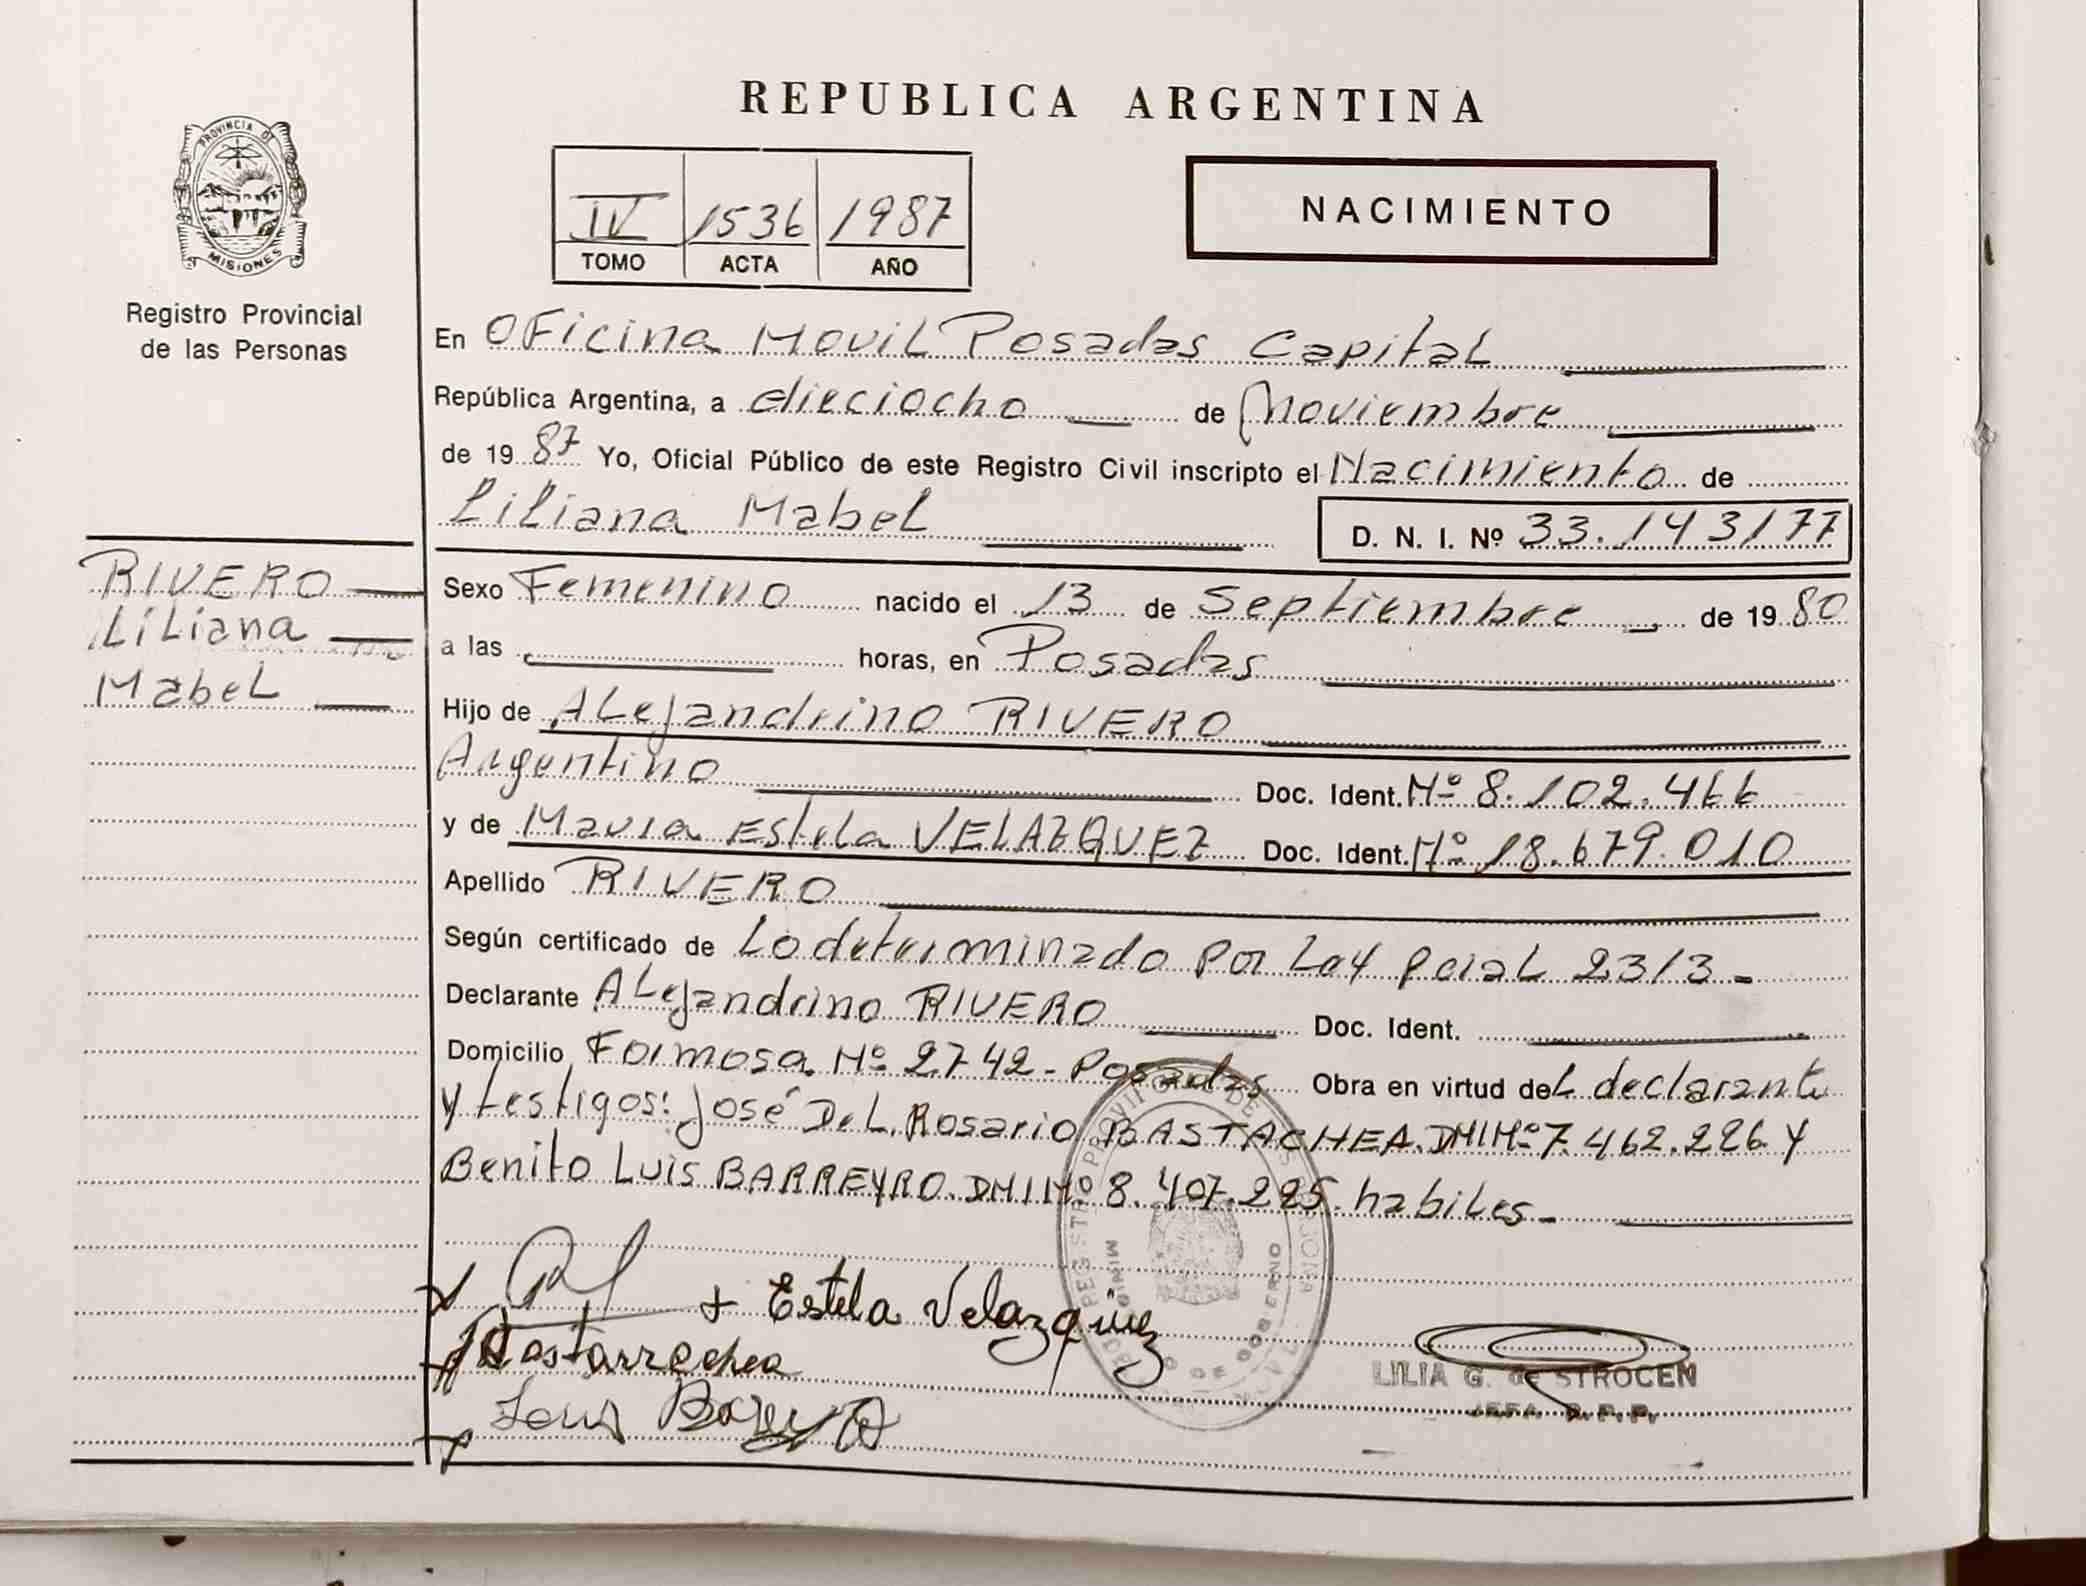 REPUBLICA ARGENTINA
PROVINCIA DE
MISIONES
Registro Provincial
de las Personas
IV 1536 1987
TOMO ACTA AÑO
NACIMIENTO
En Oficina Movil Posadas Capital
República Argentina, a dieciocho de Noviembre
de 19 87 Yo, Oficial Público de este Registro Civil inscripto el Nacimiento de
Liliana Mabel D. N. I. Nº 33.143177
RIVERO
Liliana
Mabel
Sexo Femenino nacido el 13 de Septiembre de 19 80
a las horas, en Posadas
Hijo de Alejandrino RIVERO
Argentino Doc. Ident. Nº 8.102.466
y de Maria Estela VELAZQUEZ Doc. Ident. Nº 18.679.010
Apellido RIVERO
Según certificado de Lo determinado por Ley pcial 2313-
Declarante Alejandrino RIVERO Doc. Ident.
Domicilio Formosa Nº 2742- Posadas Obra en virtud del declarante
y testigos: José Del Rosario BASTACHEA.DNI Nº 7.462.226 y
Benito Luis BARREYRO.DNI Nº 8.407.225.habiles-
Estela Velazquez
Bastarrechea
Luis
LILIA G. de STROCEN
JEFA R.P.P.